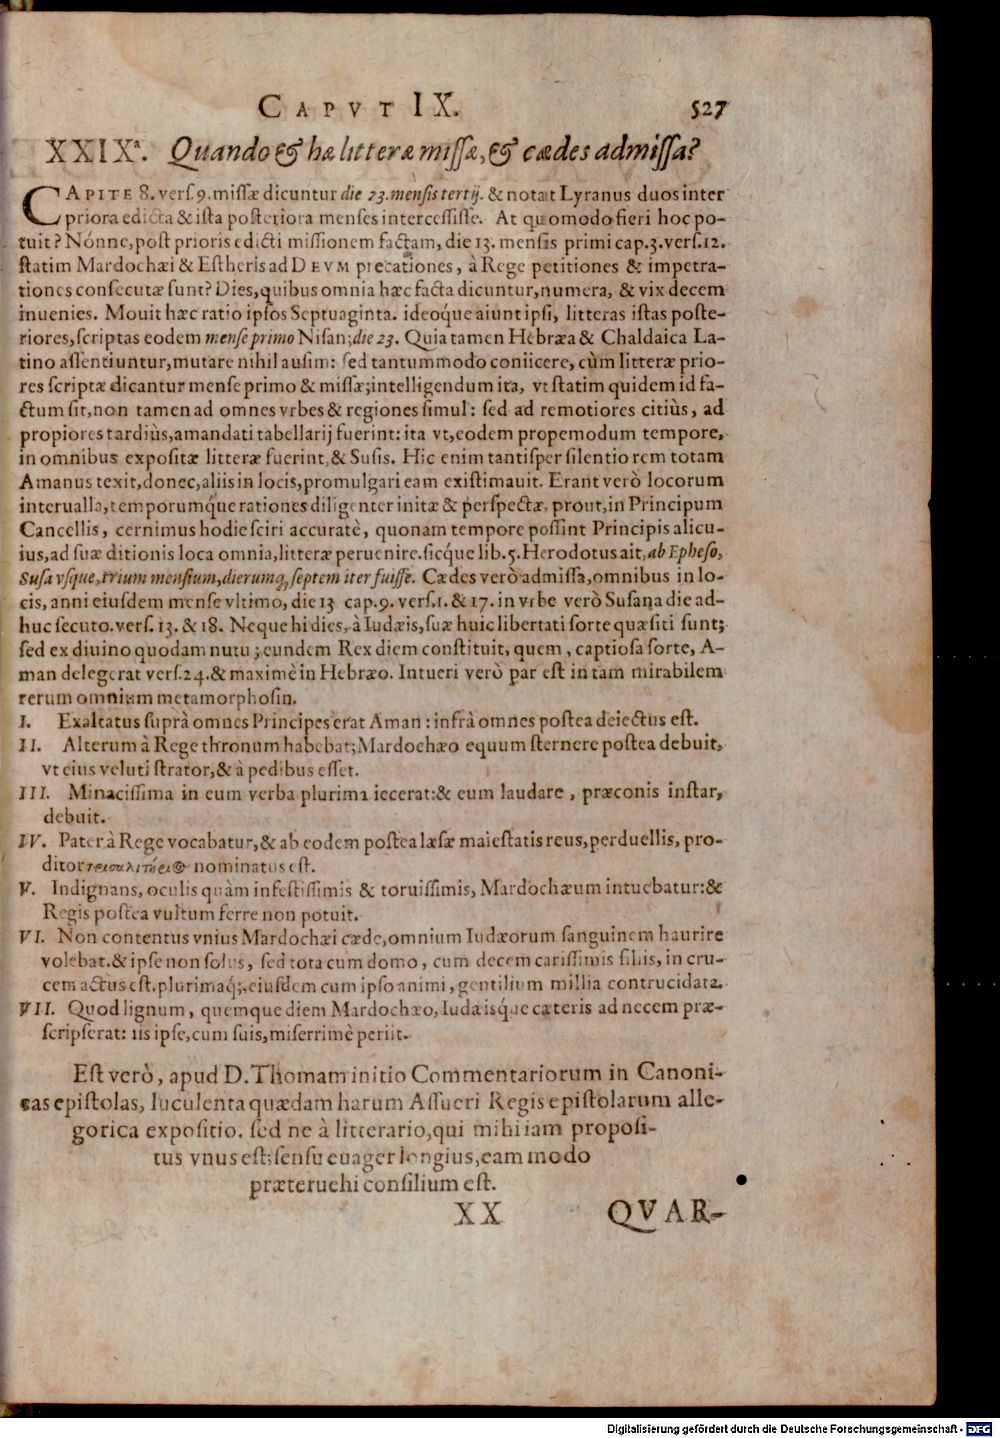 CAPVT IX. 527
XXIXª. Quando & hæ litteræ missæ, & cædes admissa?
CAPITE 8. vers. 9. missæ dicuntur die 23. mensis tertij. & notat Lyranus duos inter
priora edicta & ista posteriora menses intercessisse. At quomodo fieri hoc po-
tuit? Nónne, post prioris edicti missionem factam, die 13. mensis primi cap. 3. vers. 12.
statim Mardochæi & Estheris ad DEVM precationes, à Rege petitiones & impetra-
tiones consecutæ sunt? Dies, quibus omnia hæc facta dicuntur, numera, & vix decem
inuenies. Mouit hæc ratio ipsos Septuaginta. ideoque aiunt ipsi, litteras istas poste-
riores, scriptas eodem mense primo Nisan; die 23. Quia tamen Hebræa & Chaldaica La-
tino assentiuntur, mutare nihil ausim: sed tantummodo coniicere, cùm litteræ prio-
res scriptæ dicantur mense primo & missæ; intelligendum ita, vt statim quidem id fa-
ctum sit, non tamen ad omnes vrbes & regiones simul: sed ad remotiores citiùs, ad
propiores tardiùs, amandati tabellarij fuerint: ita vt, eodem propemodum tempore,
in omnibus expositæ litteræ fuerint, & Susis. Hic enim tantisper silentio rem totam
Amanus texit, donec, aliis in locis, promulgari eam existimauit. Erant verò locorum
interualla, temporumque rationes diligenter initæ & perspectæ, prout, in Principum
Cancellis, cernimus hodie sciri accuratè, quonam tempore possint Principis alicu-
ius, ad suæ ditionis loca omnia, litteræ peruenire. sicque lib. 5. Herodotus ait, ab Epheso,
Susa vsque, trium mensium, dierumq; septem iter fuisse. Cædes verò admissa, omnibus in lo-
cis, anni eiusdem mense vltimo, die 13 cap. 9. vers. 1. & 17. in vrbe verò Susana die ad-
huc secuto. vers. 13. & 18. Neque hi dies, à Iudæis, suæ huic libertati sorte quæsiti sunt;
sed ex diuino quodam nutu; eundem Rex diem constituit, quem, captiosa sorte, A-
man delegerat vers. 24. & maximè in Hebræo. Intueri verò par est in tam mirabilem
rerum omnium metamorphosin.
I. Exaltatus suprà omnes Principes erat Aman: infrà omnes postea deiectus est.
II. Alterum à Rege thronum habebat; Mardochæo equum sternere postea debuit,
vt eius veluti strator, & à pedibus esset.
III. Minacissima in eum verba plurima iecerat: & eum laudare, præconis instar,
debuit.
IV. Pater à Rege vocabatur, & ab eodem postea læsæ maiestatis reus, perduellis, pro-
ditor nominatus est.
V. Indignans, oculis quàm infestissimis & toruissimis, Mardochæum intuebatur: &
Regis postea vultum ferre non potuit.
VI. Non contentus vnius Mardochæi cæde, omnium Iudæorum sanguinem haurire
volebat. & ipse non solus, sed tota cum domo, cum decem carissimis filiis, in cru-
cem actus est. plurimaq;, eiusdem cum ipso animi, gentilium millia contrucidata.
VII. Quod lignum, quemque diem Mardochæo, Iudæisque cæteris ad necem præ-
scripserat: iis ipse, cum suis, miserrimè periit.
Est verò, apud D. Thomam initio Commentariorum in Canoni-
cas epistolas, luculenta quædam harum Assueri Regis epistolarum alle-
gorica expositio. sed ne à litterario, qui mihi iam proposi-
tus vnus est; sensu euager longius, eam modo
præteruehi consilium est.
XX QVAR-
Digitalisierung gefördert durch die Deutsche Forschungsgemeinschaft - DFG